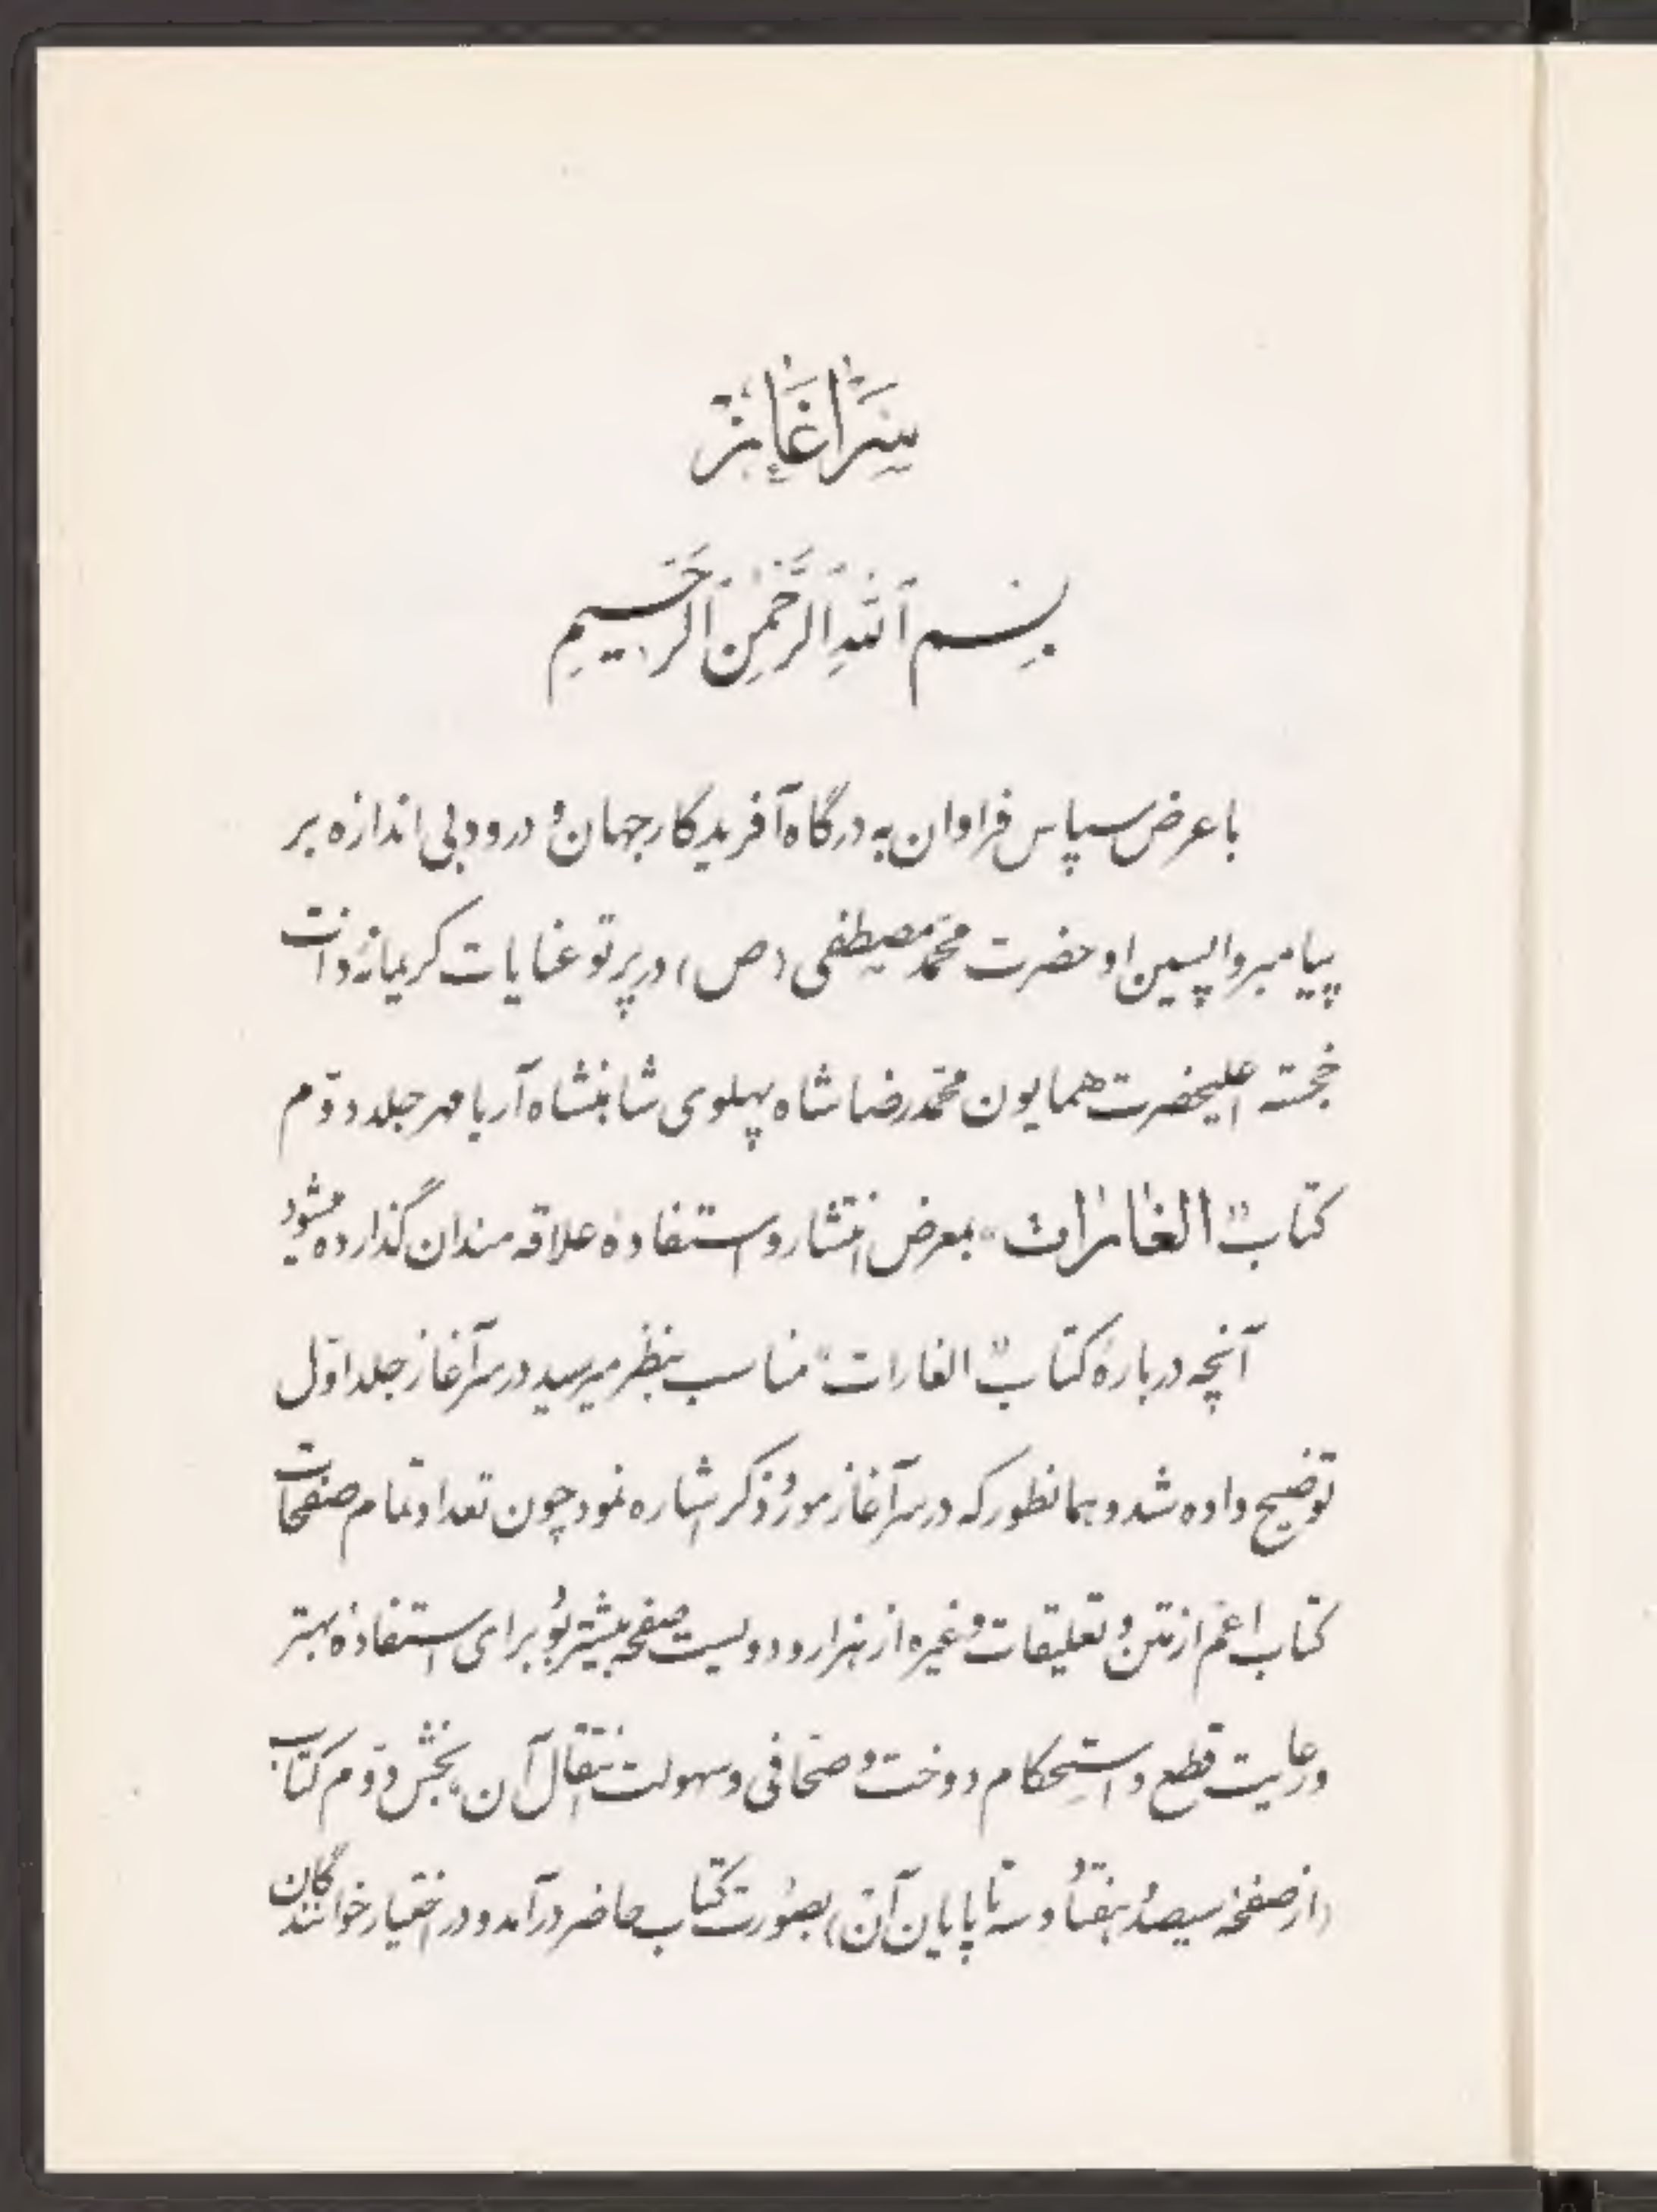 سرآغاز
بسم الله الرحمن الرحیم
با عرض سپاس فراوان به درگاه آفریدگار جهان و درود بی اندازه بر
پیامبر واپسین او حضرت محمد مصطفی (ص) در پرتو عنایات کریمانهٔ ذات
خجسته اعلیحضرت همایون محمد رضا شاه پهلوی شاهنشاه آریامهر جلد دوم
کتاب "الغارات" بمعرض انتشار و استفادهٔ علاقه مندان گذارده میشود
آنچه دربارهٔ کتاب "الغارات" مناسب بنظر میرسید در سرآغاز جلد اول
توضیح داده شد و همانطور که در سرآغاز مورد ذکر اشاره نمود چون تعداد تمام صفحات
کتاب اعم از متن و تعلیقات و غیره از هزار و دویست صفحه بیشتر بود برای استفادهٔ بهتر
و رعایت قطع و استحکام دوخت و صحافی و سهولت انتقال آن، بخش دوم کتاب
(از صفحهٔ سیصد و هفتاد و سه تا پایان آن) بصورت کتاب حاضر درآمد و در اختیار خوانندگان